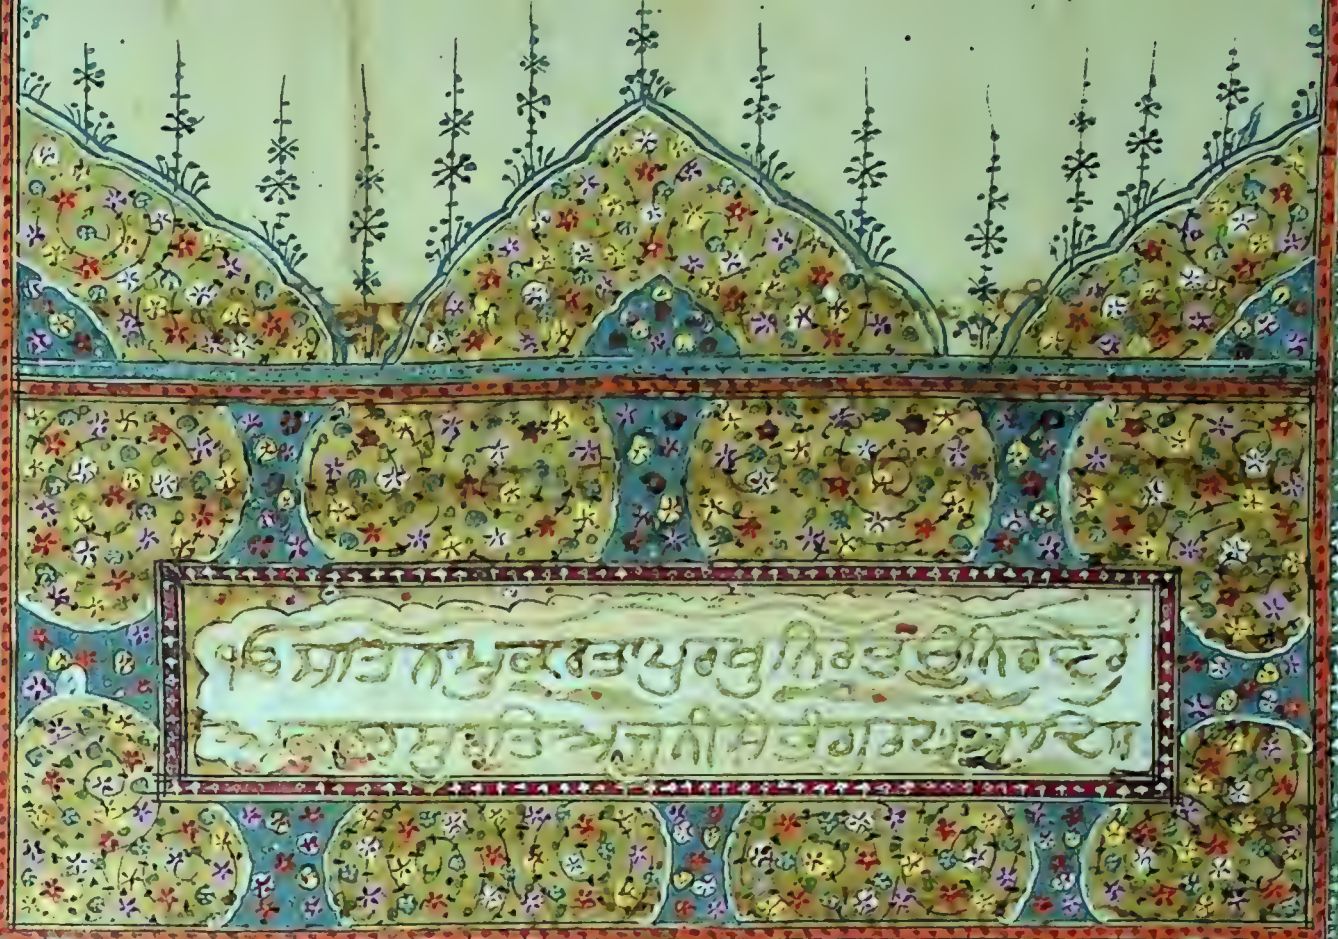 ੴ ਸਤਿ ਨਾਮੁ ਕਰਤਾ ਪੁਰਖੁ ਨਿਰਭਉ ਨਿਰਵੈਰੁ
ਅਕਾਲ ਮੂਰਤਿ ਅਜੂਨੀ ਸੈਭੰ ਗੁਰਪ੍ਰਸਾਦਿ॥